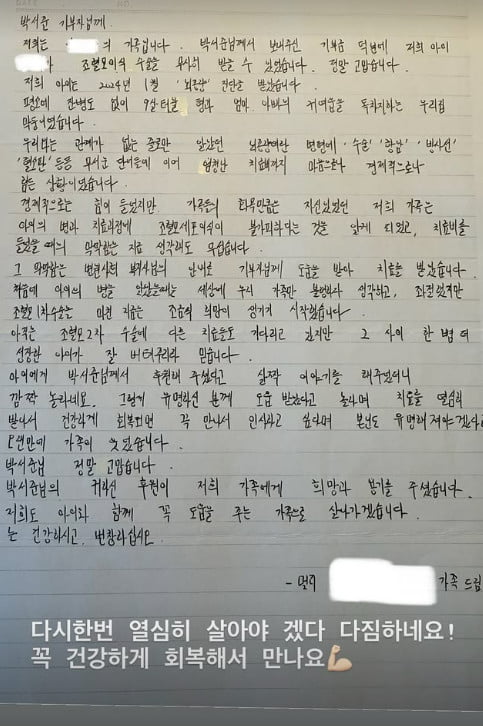 박서준 기부자님께.
저희는 의 가족입니다. 박서준님께서 보내주신 기부금 덕분에 저희 아이
조혈모이식 수술을 무사히 받을 수 있었습니다. 정말 고맙습니다.
저희 아이는 2024년 1월 '뇌종양' 진단을 받았습니다.
평소에 한번도 없이 형과 엄마 아빠의 귀여움을 독차지하는 우리집
막둥이였습니다.
우리와는 관계가 없는 줄로만 알았던 뇌종양이란 병명에 '수술' '항암' '방사선'
등등 무서운 단어들에 이어 엄청난 치료비까지 마음으로나 경제적으로나
힘든 상황이었습니다.
경제적으로는 힘이 들었지만 가족들의 화목만큼은 자신있었던 저희 가족은
아이의 병과 치료과정에 조혈모세포이식이 불가피하다는 것을 알게 되었고, 치료비를
들었을 때의 막막함은 지금 생각해도 무섭습니다.
그 막막함은 선생님의 안내로 기부자님께 도움을 받아 치료를 받았습니다.
처음에 아이의 병을 알았을때는 세상에 우리 가족만 불행하다 생각하고, 좌절했지만
조혈 1차수술을 마친 지금은 조금의 희망이 생기기 시작했습니다.
아직은 조혈모 2차 수술에 다른 치료들도 기다리고 있지만 그 사이 한 뼘 더
성장한 아이가 잘 버텨주리라 믿습니다.
아이에게 박서준님께서 후원해 주셨다고 살짝 이야기를 해주었더니
깜짝 놀라네요. 그렇게 유명하신 분께 도움 받았다고 놀라며 치료를 열심히
받아서 건강하게 회복되면 꼭 만나서 인사하고 싶다며 본인도 유명해져야겠다
오랜만에 가족이 웃었습니다.
박서준님 정말 고맙습니다.
박서준님의 귀하신 후원이 저희 가족에게 희망과 용기를 주셨습니다.
저희도 아이와 함께 꼭 도움을 주는 가족으로 살아가겠습니다.
는 건강하시고, 번창하십시오.
- 멀리 가족 드림
다시한번 열심히 살아야 겠다 다짐하네요!
꼭 건강하게 회복해서 만나요💪🏻